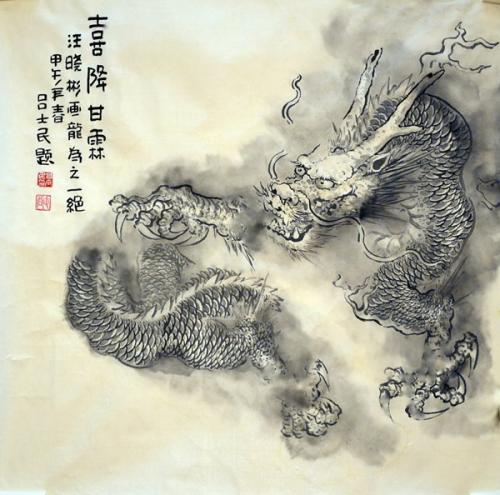 喜降甘霖
汪晓彬画龍為之一絕
甲午年春
吕士民题